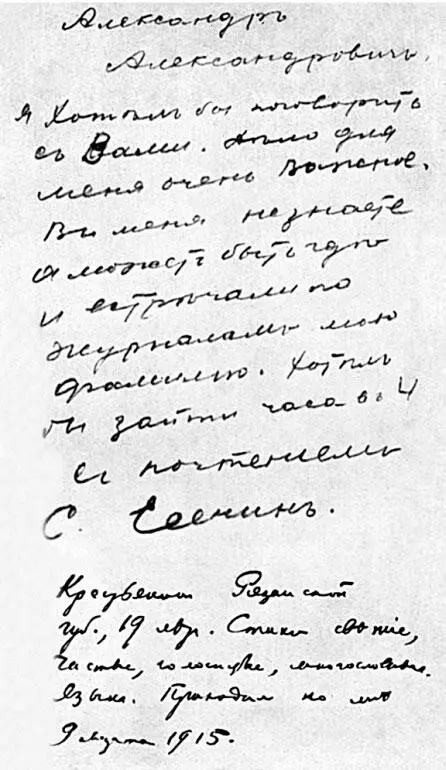 Александръ
Александровичъ.
я Хотѣлъ бы поговорить
съ Вами. Дѣло для
меня очень важное.
Вы меня не знаете
а можетъ быть гдѣ
и встрѣчали по
журналамъ мою
фамилію. Хотѣлъ
бы зайти часа въ 4
съ почтеніемъ
С. Есенинъ.
Крестьянин Рязанской
губ., 19 лет. Стихи свежие,
чистые, голосистые, многословные.
Язык. Приходил ко мне
9 марта 1915.